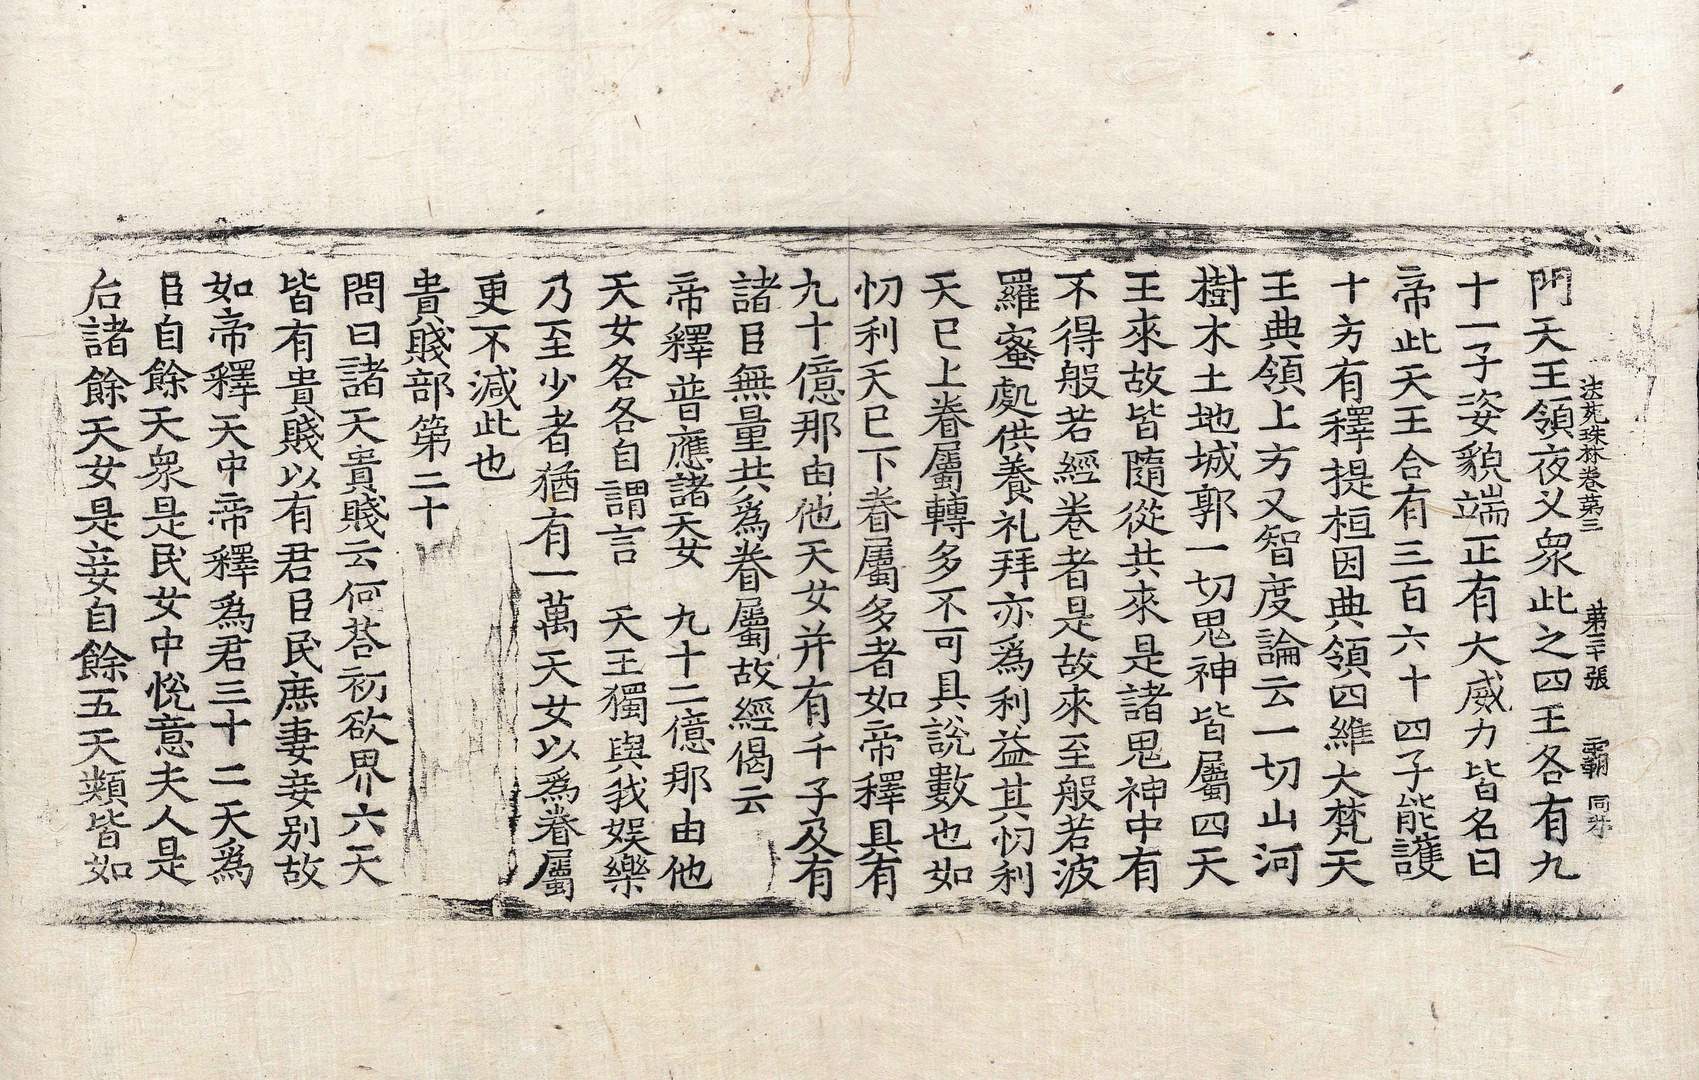 法苑珠林卷第三 第三十張 覇 同刻
門天王領夜叉衆此之四王各有九
十一子姿貌端正有大威力皆名曰
帝此天王合有三百六十四子能護
十方有釋提桓因典領四維大梵天
王典領上方又智度論云一切山河
樹木土地城郭一切鬼神皆屬四天
王來故皆隨從共來是諸鬼神中有
不得般若經卷者是故來至般若波
羅蜜處供養礼拜亦爲利益其忉利
天已上眷屬轉多不可具說數也如
忉利天已下眷屬多者如帝釋具有
九十億那由他天女并有千子及有
諸臣無量共爲眷屬故經偈云
帝釋普應諸天女 九十二億那由他
天女各各自謂言 天王獨與我娛樂
乃至少者猶有一萬天女以爲眷屬
更不減此也
貴賤部第二十
問曰諸天貴賤云何荅初欲界六天
皆有貴賤以有君臣民庶妻妾別故
如帝釋天中帝釋爲君三十二天爲
臣自餘天衆是民女中悅意夫人是
后諸餘天女是妾自餘五天類皆如